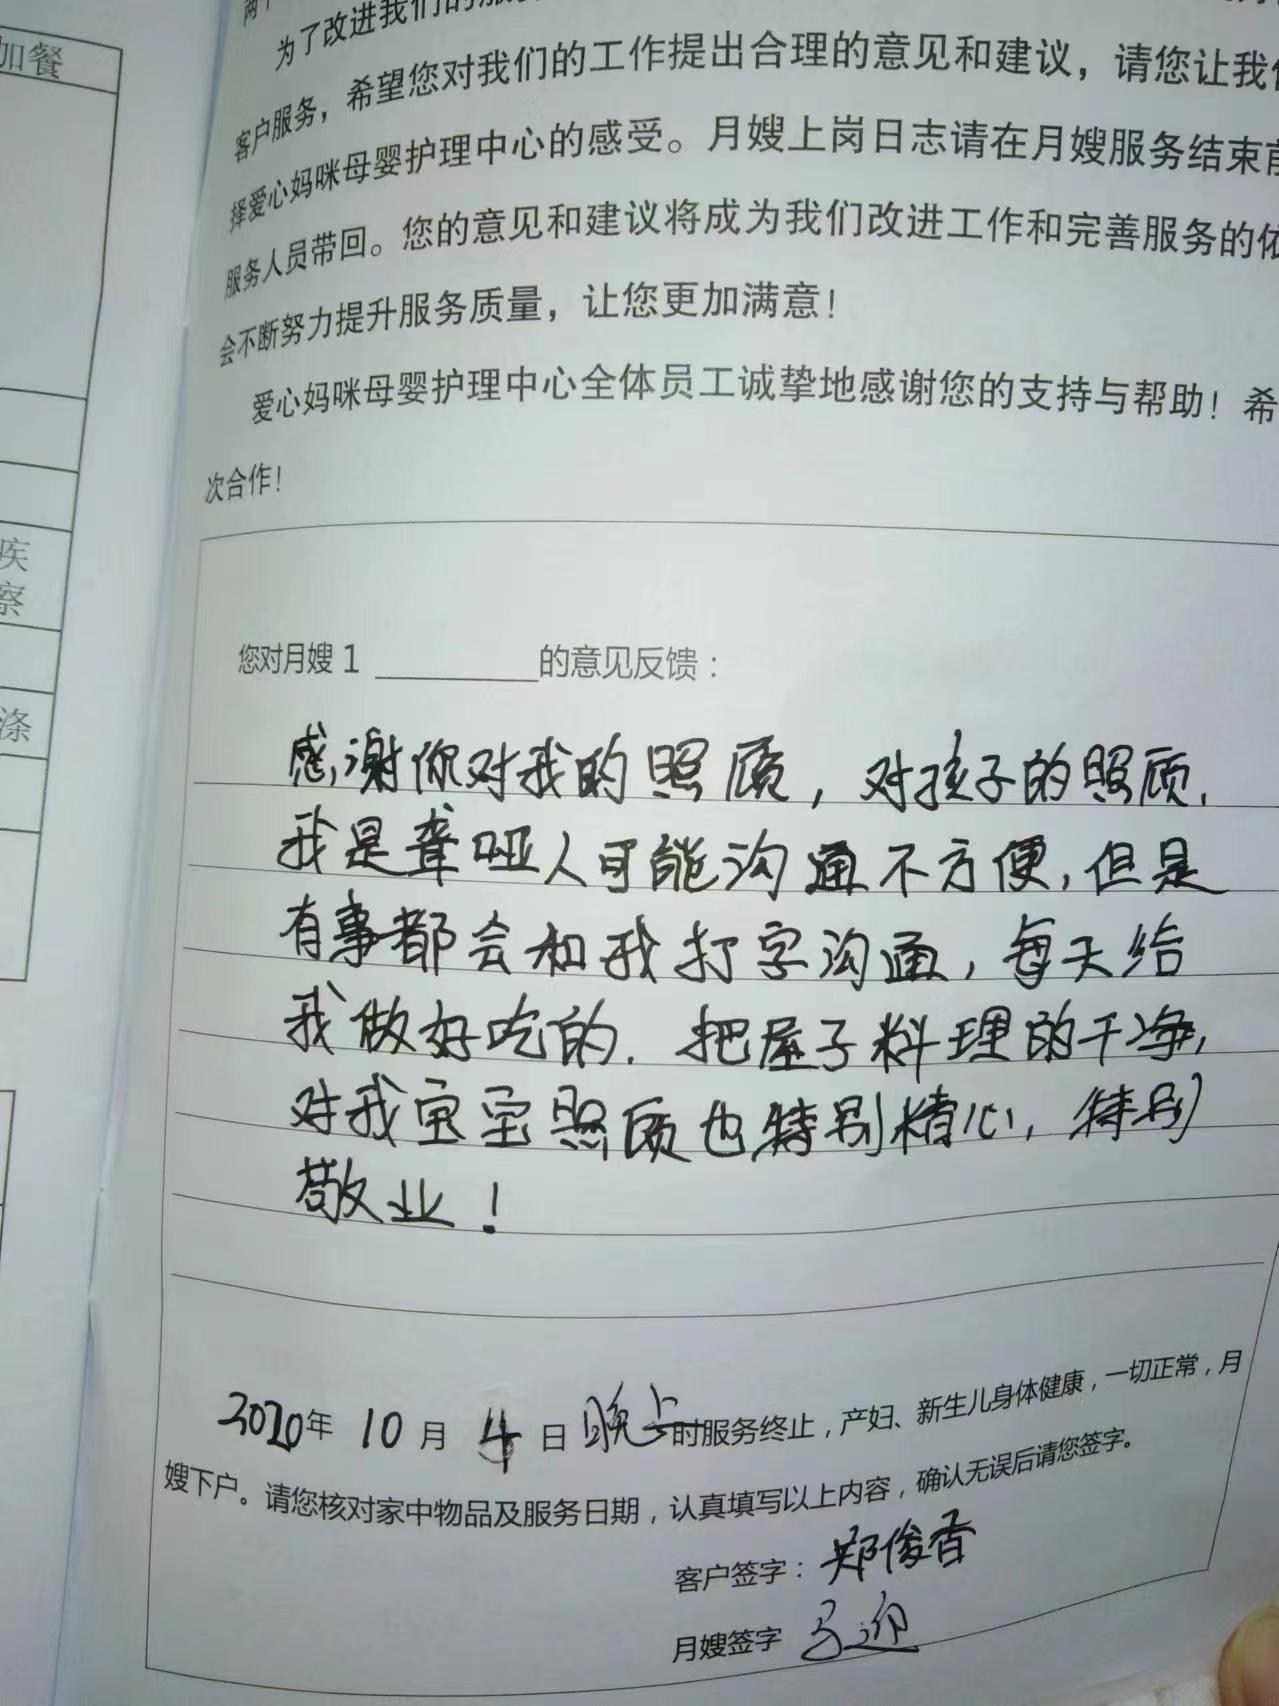 为了改进我们的服务
客户服务，希望您对我们的工作提出合理的意见和建议，请您让我们
择爱心妈咪母婴护理中心的感受。月嫂上岗日志请在月嫂服务结束前
服务人员带回。您的意见和建议将成为我们改进工作和完善服务的依
会不断努力提升服务质量，让您更加满意！
爱心妈咪母婴护理中心全体员工诚挚地感谢您的支持与帮助！希
次合作！
您对月嫂1 __________的意见反馈：
感谢你对我的照顾，对孩子的照顾.
我是聋哑人可能沟通不方便,但是
有事都会和我打字沟通，每天给
我做好吃的.把屋子料理的干净,
对我宝宝照顾也特别精心，特别
敬业！
2020年 10月 4日晚上时服务终止，产妇、新生儿身体健康，一切正常，月
嫂下户。请您核对家中物品及服务日期，认真填写以上内容，确认无误后请您签字。
客户签字：郑俊香
月嫂签字 马迎
加餐
疾
察
涤